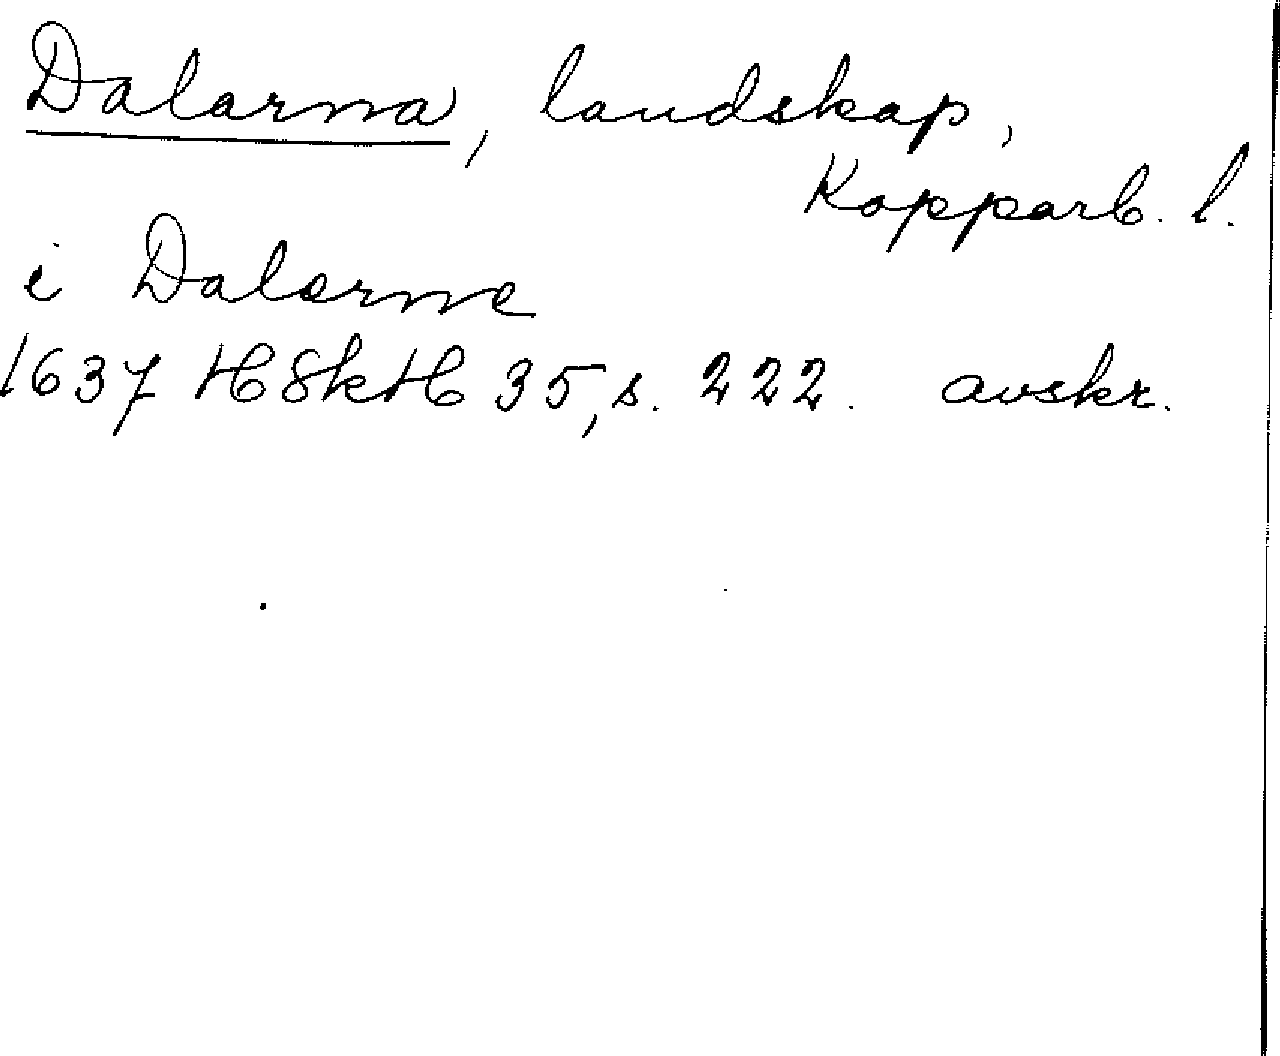 Dalarna, landskap,
Kopparb. l.
i Dalarne
1637 HSkH 35, s. 222. avskr.